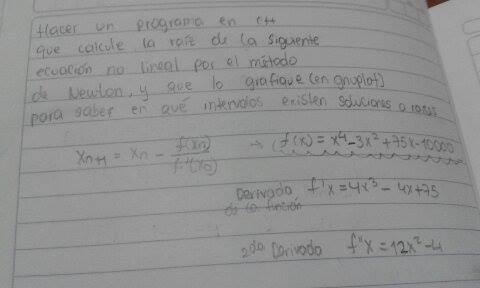 Hacer un programa en c++
que calcule la raíz de la siguiente
ecuación no lineal por el método
de Newton, y que lo grafique (en gnuplot)
para saber en qué intervalos existen soluciones o raíces
Xn+1 = Xn - f(xn)/f'(xn) → f(x) = x⁴-3x²+75x-10000
Derivada f'x = 4x³ - 4x+75
de la función
2da Derivada f''x = 12x²-4